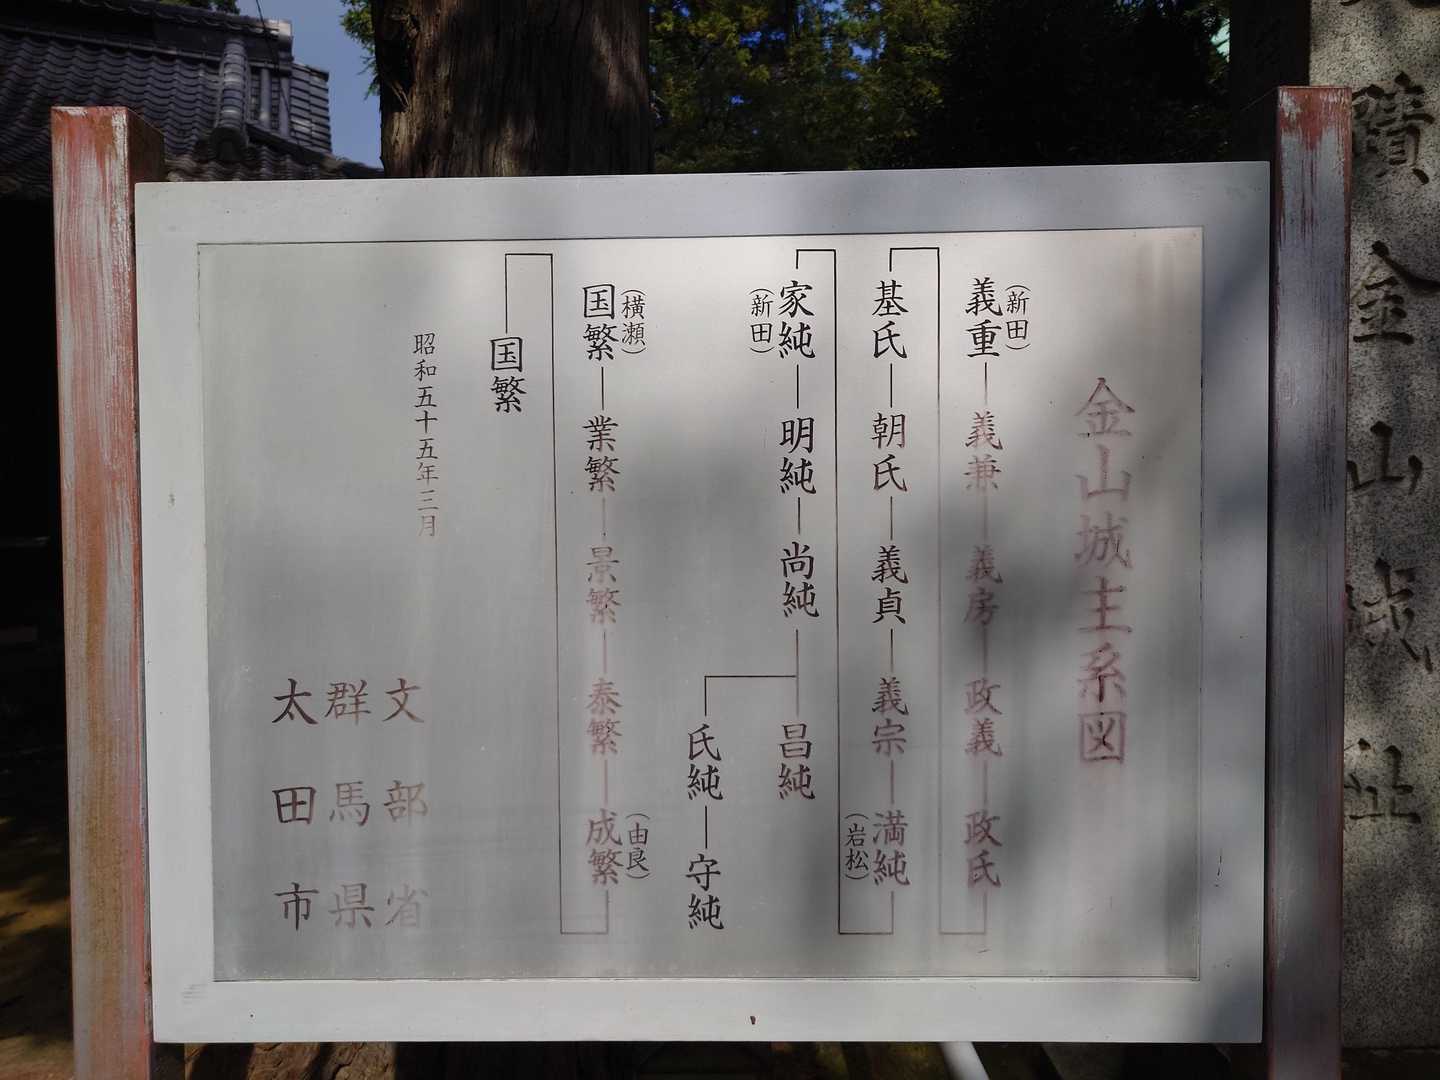 金山城主系図
義重(新田)―義兼―義房―政義―政氏
基氏―朝氏―義貞―義宗―満純(岩松)
家純(新田)―明純―尚純―昌純
氏純―守純
国繁(横瀬)―業繁―景繁―泰繁―成繁(由良)
国繁
昭和五十五年三月
文部省
群馬県
太田市
蹟金山城址